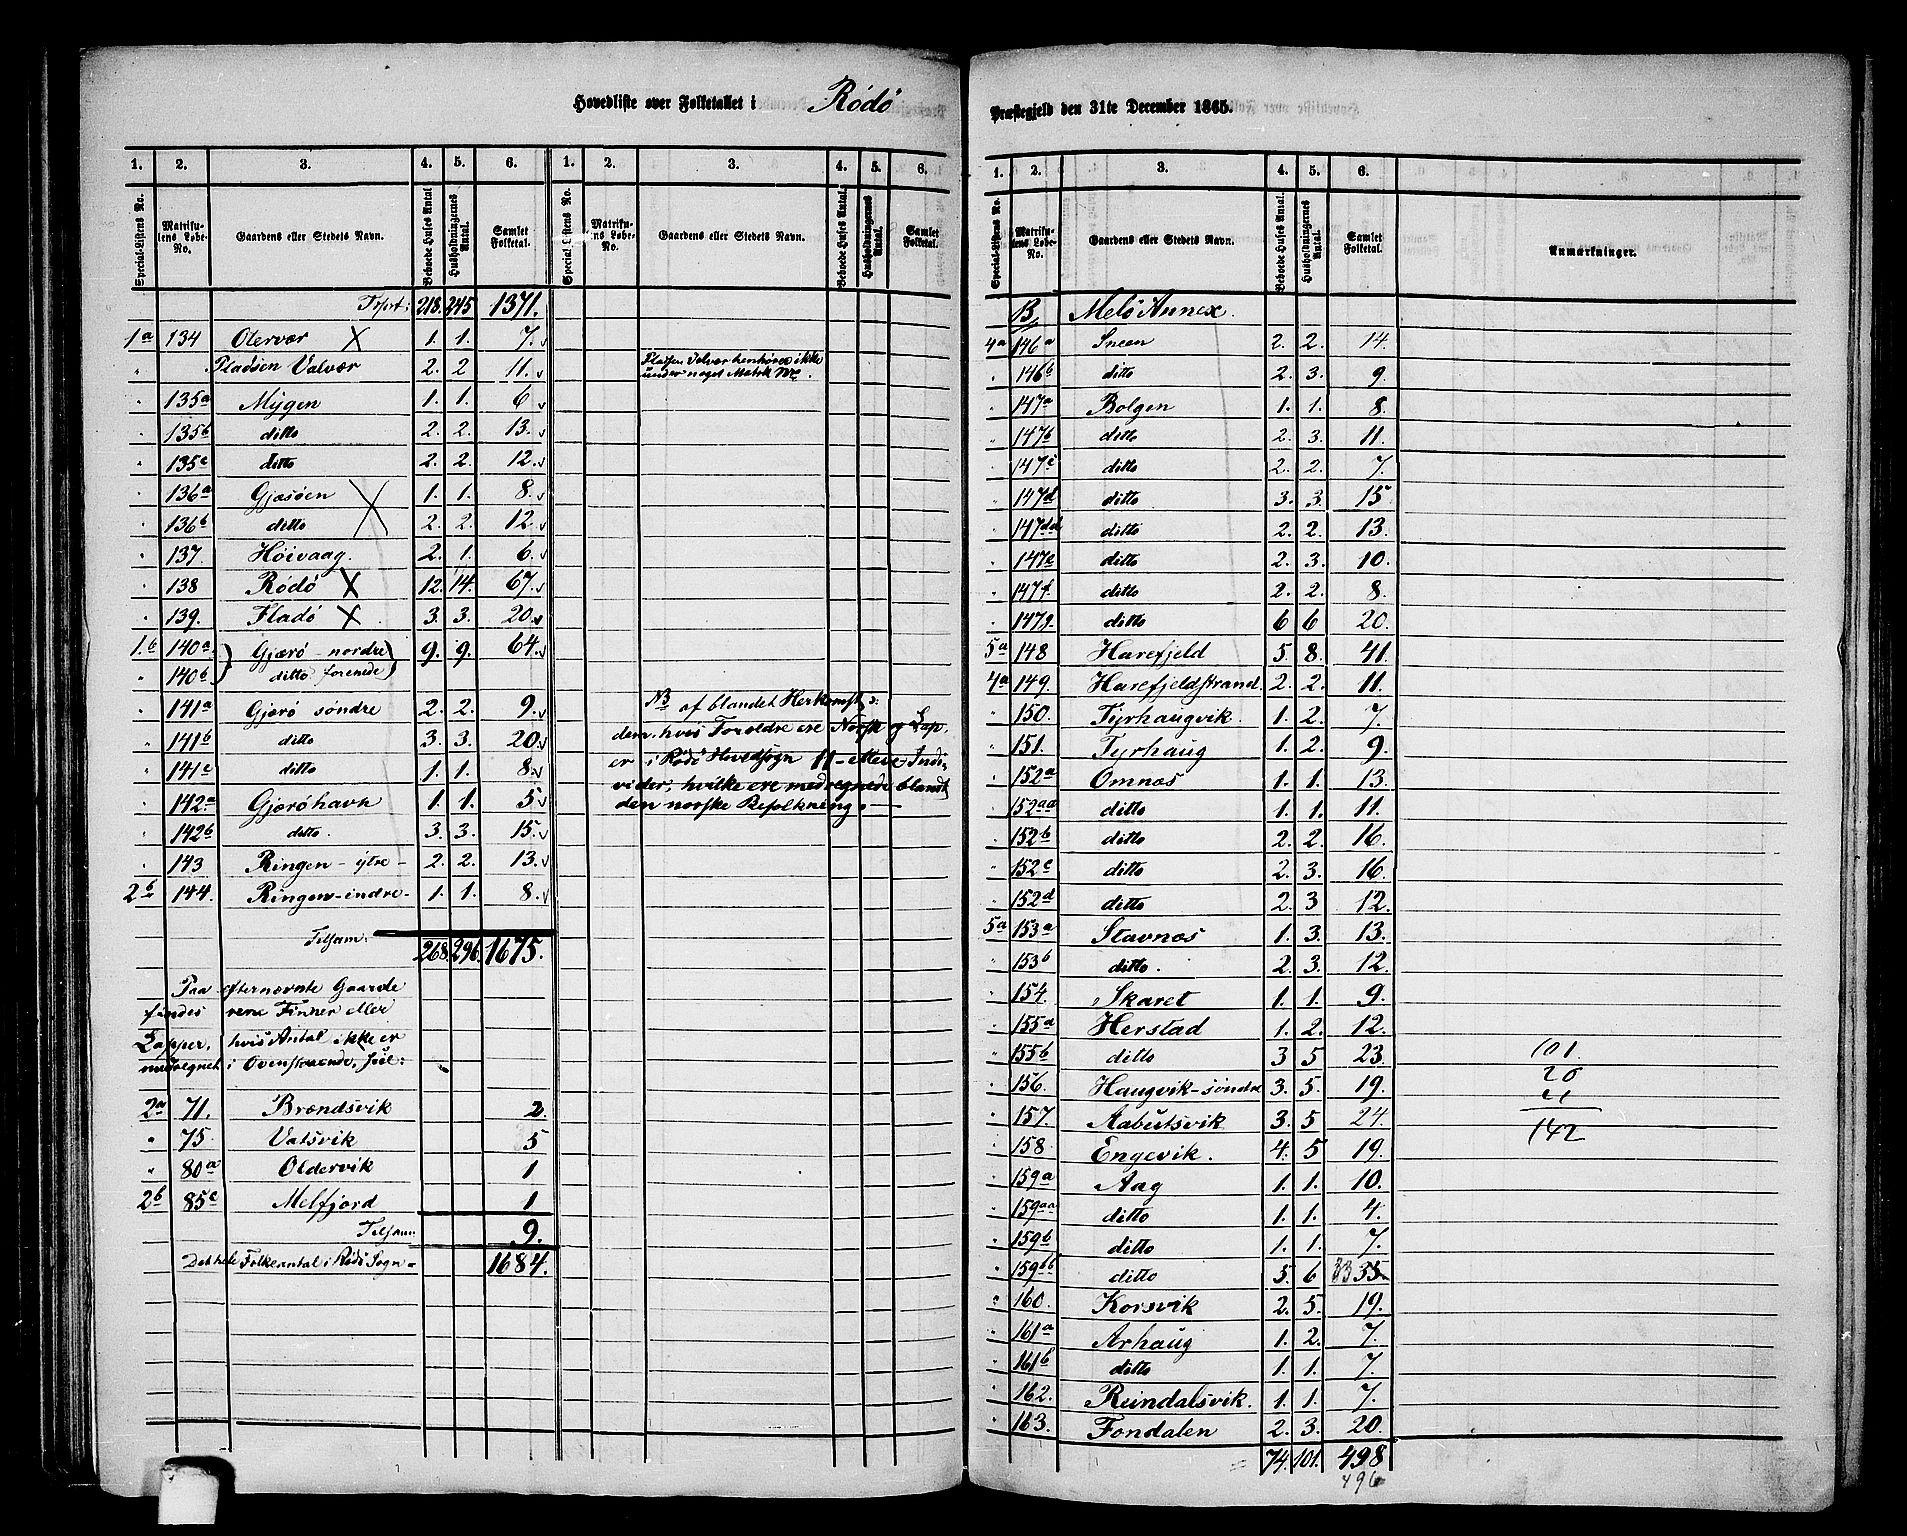 Hovedliste over Folketallet i Rödö
1. 2. 3. 4. 5. 6. 1. 2. 3. 4. 5. 6.
Special-Listens No. Matrikulens Løbe-No. Gaardens eller Stedets Navn. Beboede Huses Antal Husholdningernes Antal. Samlet Folketal. Special-Listens No. Matrikulens Løbe-No. Gaardens eller Stedets Navn. Beboede Huses Antal. Husholdningernes Antal. Samlet Folketal.
Trsprt: 218. 245 1371.
1a 134 Otervær X 1. 1. 7.
" Pladsen Valvær 2. 2 11.
" 135a Mygen 1. 1. 6
" 135b ditto 2. 2. 13.
" 135c ditto 2. 2. 12.
" 136a Gjæsöen 1. 1. 8.
" 136b ditto X 2. 2. 12.
" 137. Höivaag. 2. 1. 6.
" 138 Rödö X 12. 14. 67.
" 139. Fladö X 3. 3. 20.
1.b 140a Gjærö - nordre 9. 9. 64.
" 140b ditto forenede
" 141a Gjærö söndre 2. 2. 9.
" 141b ditto 3. 3. 20.
" 141c ditto 1. 1. 8.
" 142a Gjæröhavn 1. 1. 5
" 142b ditto. 3. 3. 15.
" 143 Ringen - ytre - 2. 2. 13.
2b 144. Ringen - indre - 1. 1. 8.
Tilsam: 268 296. 1675.
Paa efternævnte Gaarde
findes rene Finner eller
Lapper, hvis Antal ikke er
medregnet i Ovenstaaende,
2a 71. Brændsvik 2.
" 75. Vatsvik 5
" 80a Oldervik 1
2b 85c Melfjord 1
Tilsam: 9.
Det hele Folkeantal i Rödö Sogn = 1684.
Pladsen Valvær henhörer ikke
under noget Matrik No.
NB af blandet Herkomst ɔ:
dem, hvis Forældre ere Norsk og Lap,
er i Rödö Hovedsogn 11 - Elleve - Indi-
vider, hvilke ere medregnede blandt
den norske Befolkning. —
Præstegjeld den 31te December 1865.
1. 2. 3. 4. 5. 6.
Special-Listens No. Matrikulens Løbe-No. Gaardens eller Stedets Navn. Beboede Huses Antal. Husholdningernes Antal. Samlet Folketal. Anmærkninger.
B, Melö Annex.
4a 146a Sneen 2. 2. 14.
" 146b ditto 2. 3. 9.
" 147a Bolgen 1. 1. 8.
" 147b ditto 2. 3. 11.
" 147c ditto 2. 2. 7.
" 147d ditto 3. 3. 15
" 147dd ditto 2. 2. 13.
" 147e ditto 2. 3. 10.
" 147f ditto 2. 2. 8.
" 147g ditto 6 6 20.
5a 148 Harefjeld 5. 8. 41.
4a 149. Harefjeldstrand. 2. 2. 11.
" 150. Tyrhaugvik. 1. 2. 7.
" 151. Tyrhaug 1. 2. 9.
" 152a Omnæs 1. 1. 13.
" 152aa ditto 1. 1. 11.
" 152b ditto 2. 2. 16.
" 152c ditto 2. 3. 16.
" 152d ditto 2. 3 12.
5a 153a Stavnæs 1. 3. 13.
" 153b ditto. 2. 3. 12.
" 154. Skaret 1. 1. 9.
" 155a Herstad 1. 2. 12.
" 155b ditto 3 5 23. 101.
" 156. Haugvik - söndre 3. 5. 19. 20
" 157. Aabutsvik 3. 5 24. 21
" 158 Engevik. 4. 5 19. 142
" 159a Aag 1. 1. 10.
" 159aa ditto 1. 1. 4.
" 159b ditto 1. 1. 7.
" 159bb ditto 5. 6 33 35
" 160. Korsvik 2. 5. 19.
" 161a Arhaug 1. 2. 7.
" 161b ditto 1. 1. 7.
" 162. Reindalsvik. 1. 1. 7.
" 163. Fondalen 2. 3. 20.
74. 101. 498
496